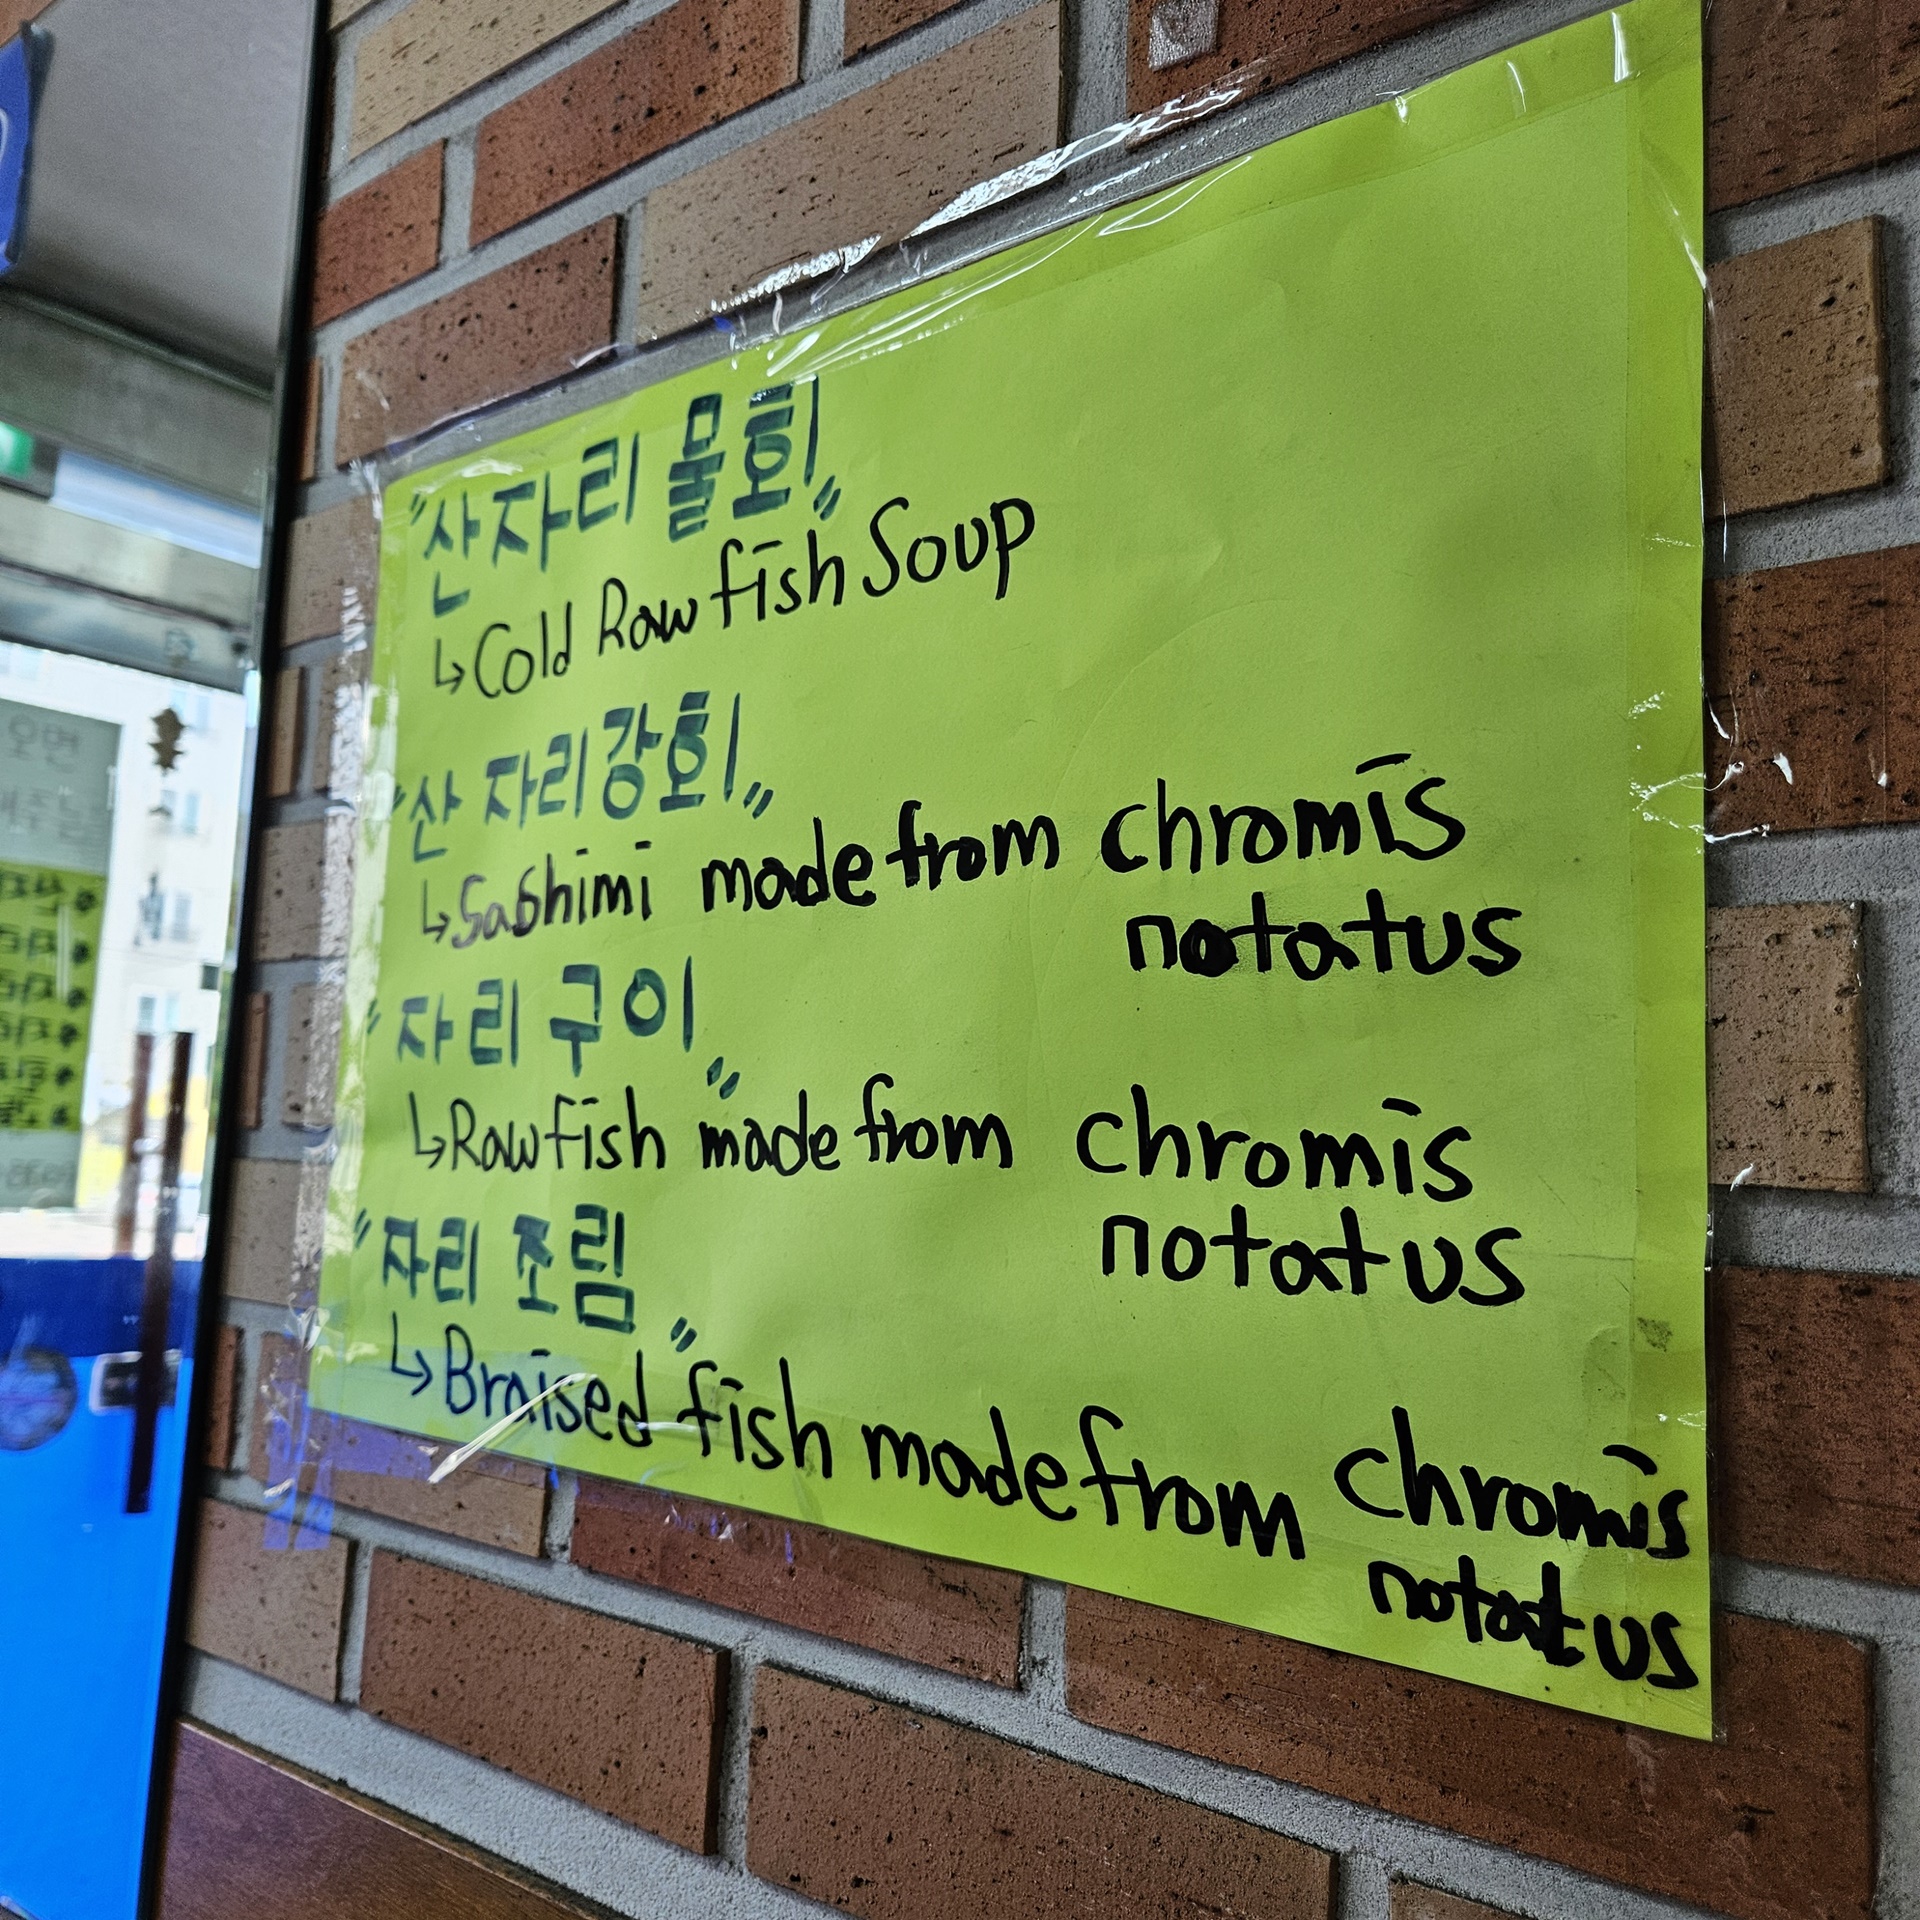 "산자리 물회"
↳Cold Raw fish Soup
"산 자리강회"
↳Sashimi made from chromis
notatus
"자리 구이"
↳Raw fish made from chromis
notatus
"자리 조림"
↳Braised fish made from chromis
notatus
오면